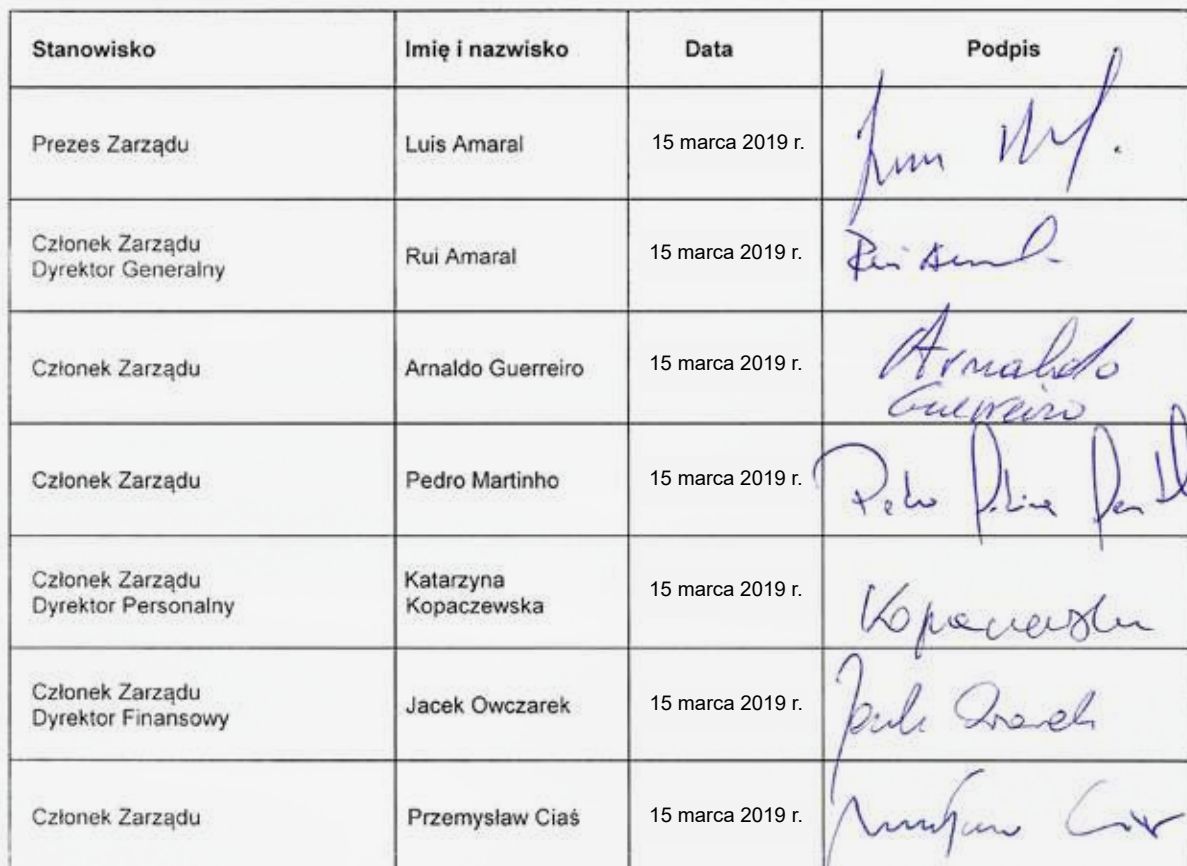 Stanowisko Imię i nazwisko Data Podpis
Prezes Zarządu Luis Amaral 15 marca 2019 r.
Członek Zarządu
Dyrektor Generalny Rui Amaral 15 marca 2019 r.
Członek Zarządu Arnaldo Guerreiro 15 marca 2019 r. Arnaldo
Guerreiro
Członek Zarządu Pedro Martinho 15 marca 2019 r. Pedro
Członek Zarządu
Dyrektor Personalny Katarzyna
Kopaczewska 15 marca 2019 r. Kopaczewska
Członek Zarządu
Dyrektor Finansowy Jacek Owczarek 15 marca 2019 r.
Członek Zarządu Przemysław Ciaś 15 marca 2019 r.